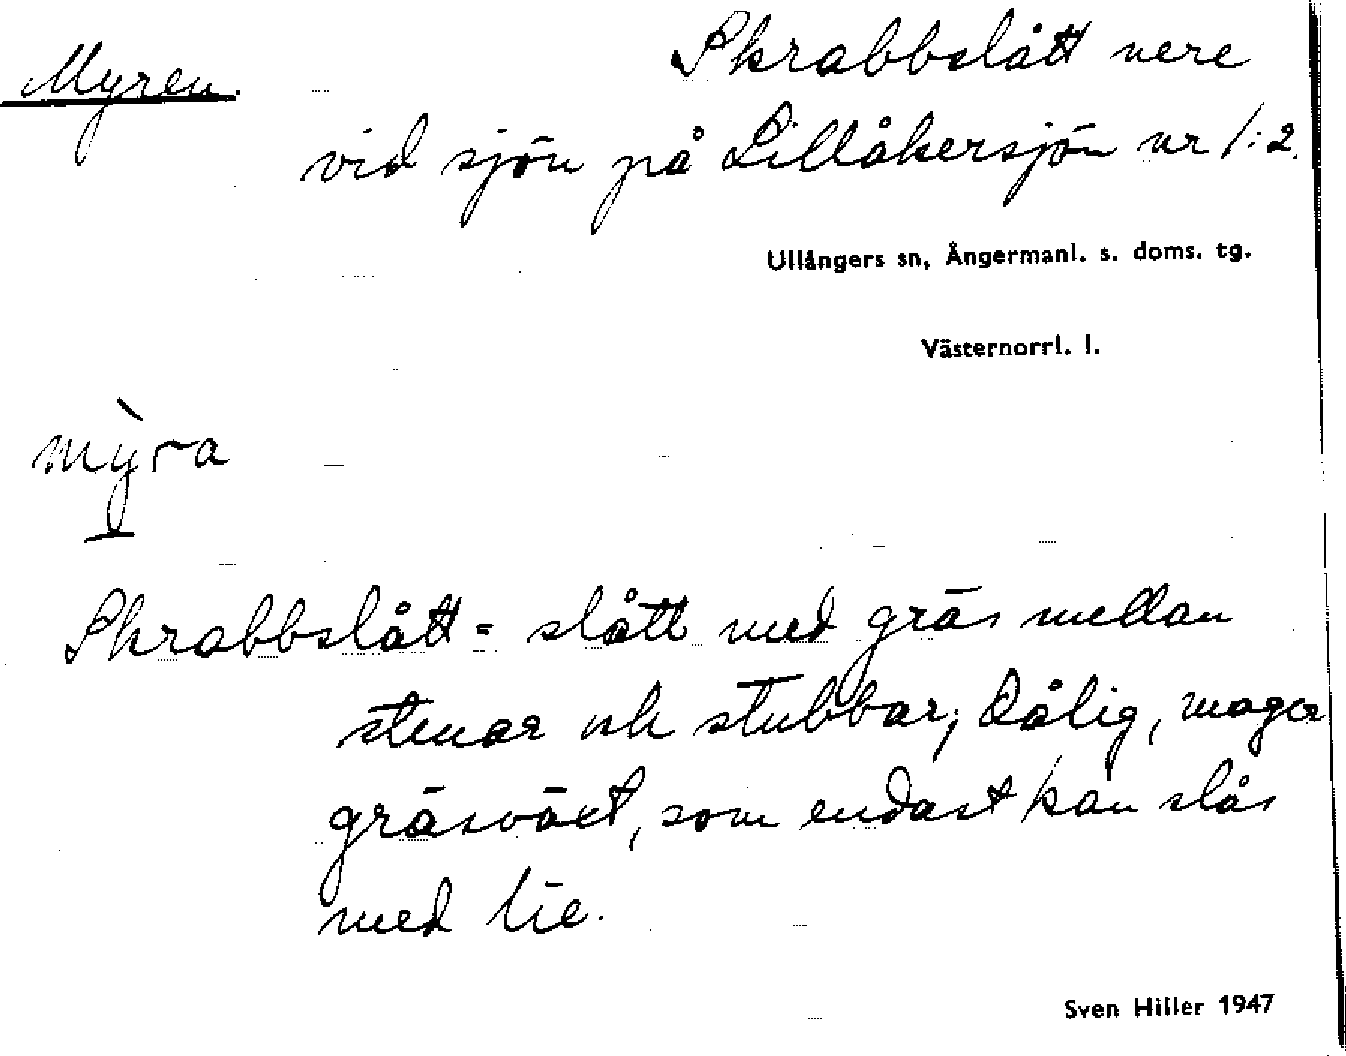 Myren. Skrabbslått nere
vid sjön på Lillåkersjön nr 1:2.
Ullångers sn, Ångermanl. s. doms. tg.
Västernorrl. l.
mỳra
Skrabbslått = slått med gräs mellan
stenar och stubbar; dålig, mager
gräsväxt, som endast kan slås
med lie.
Sven Hiller 1947